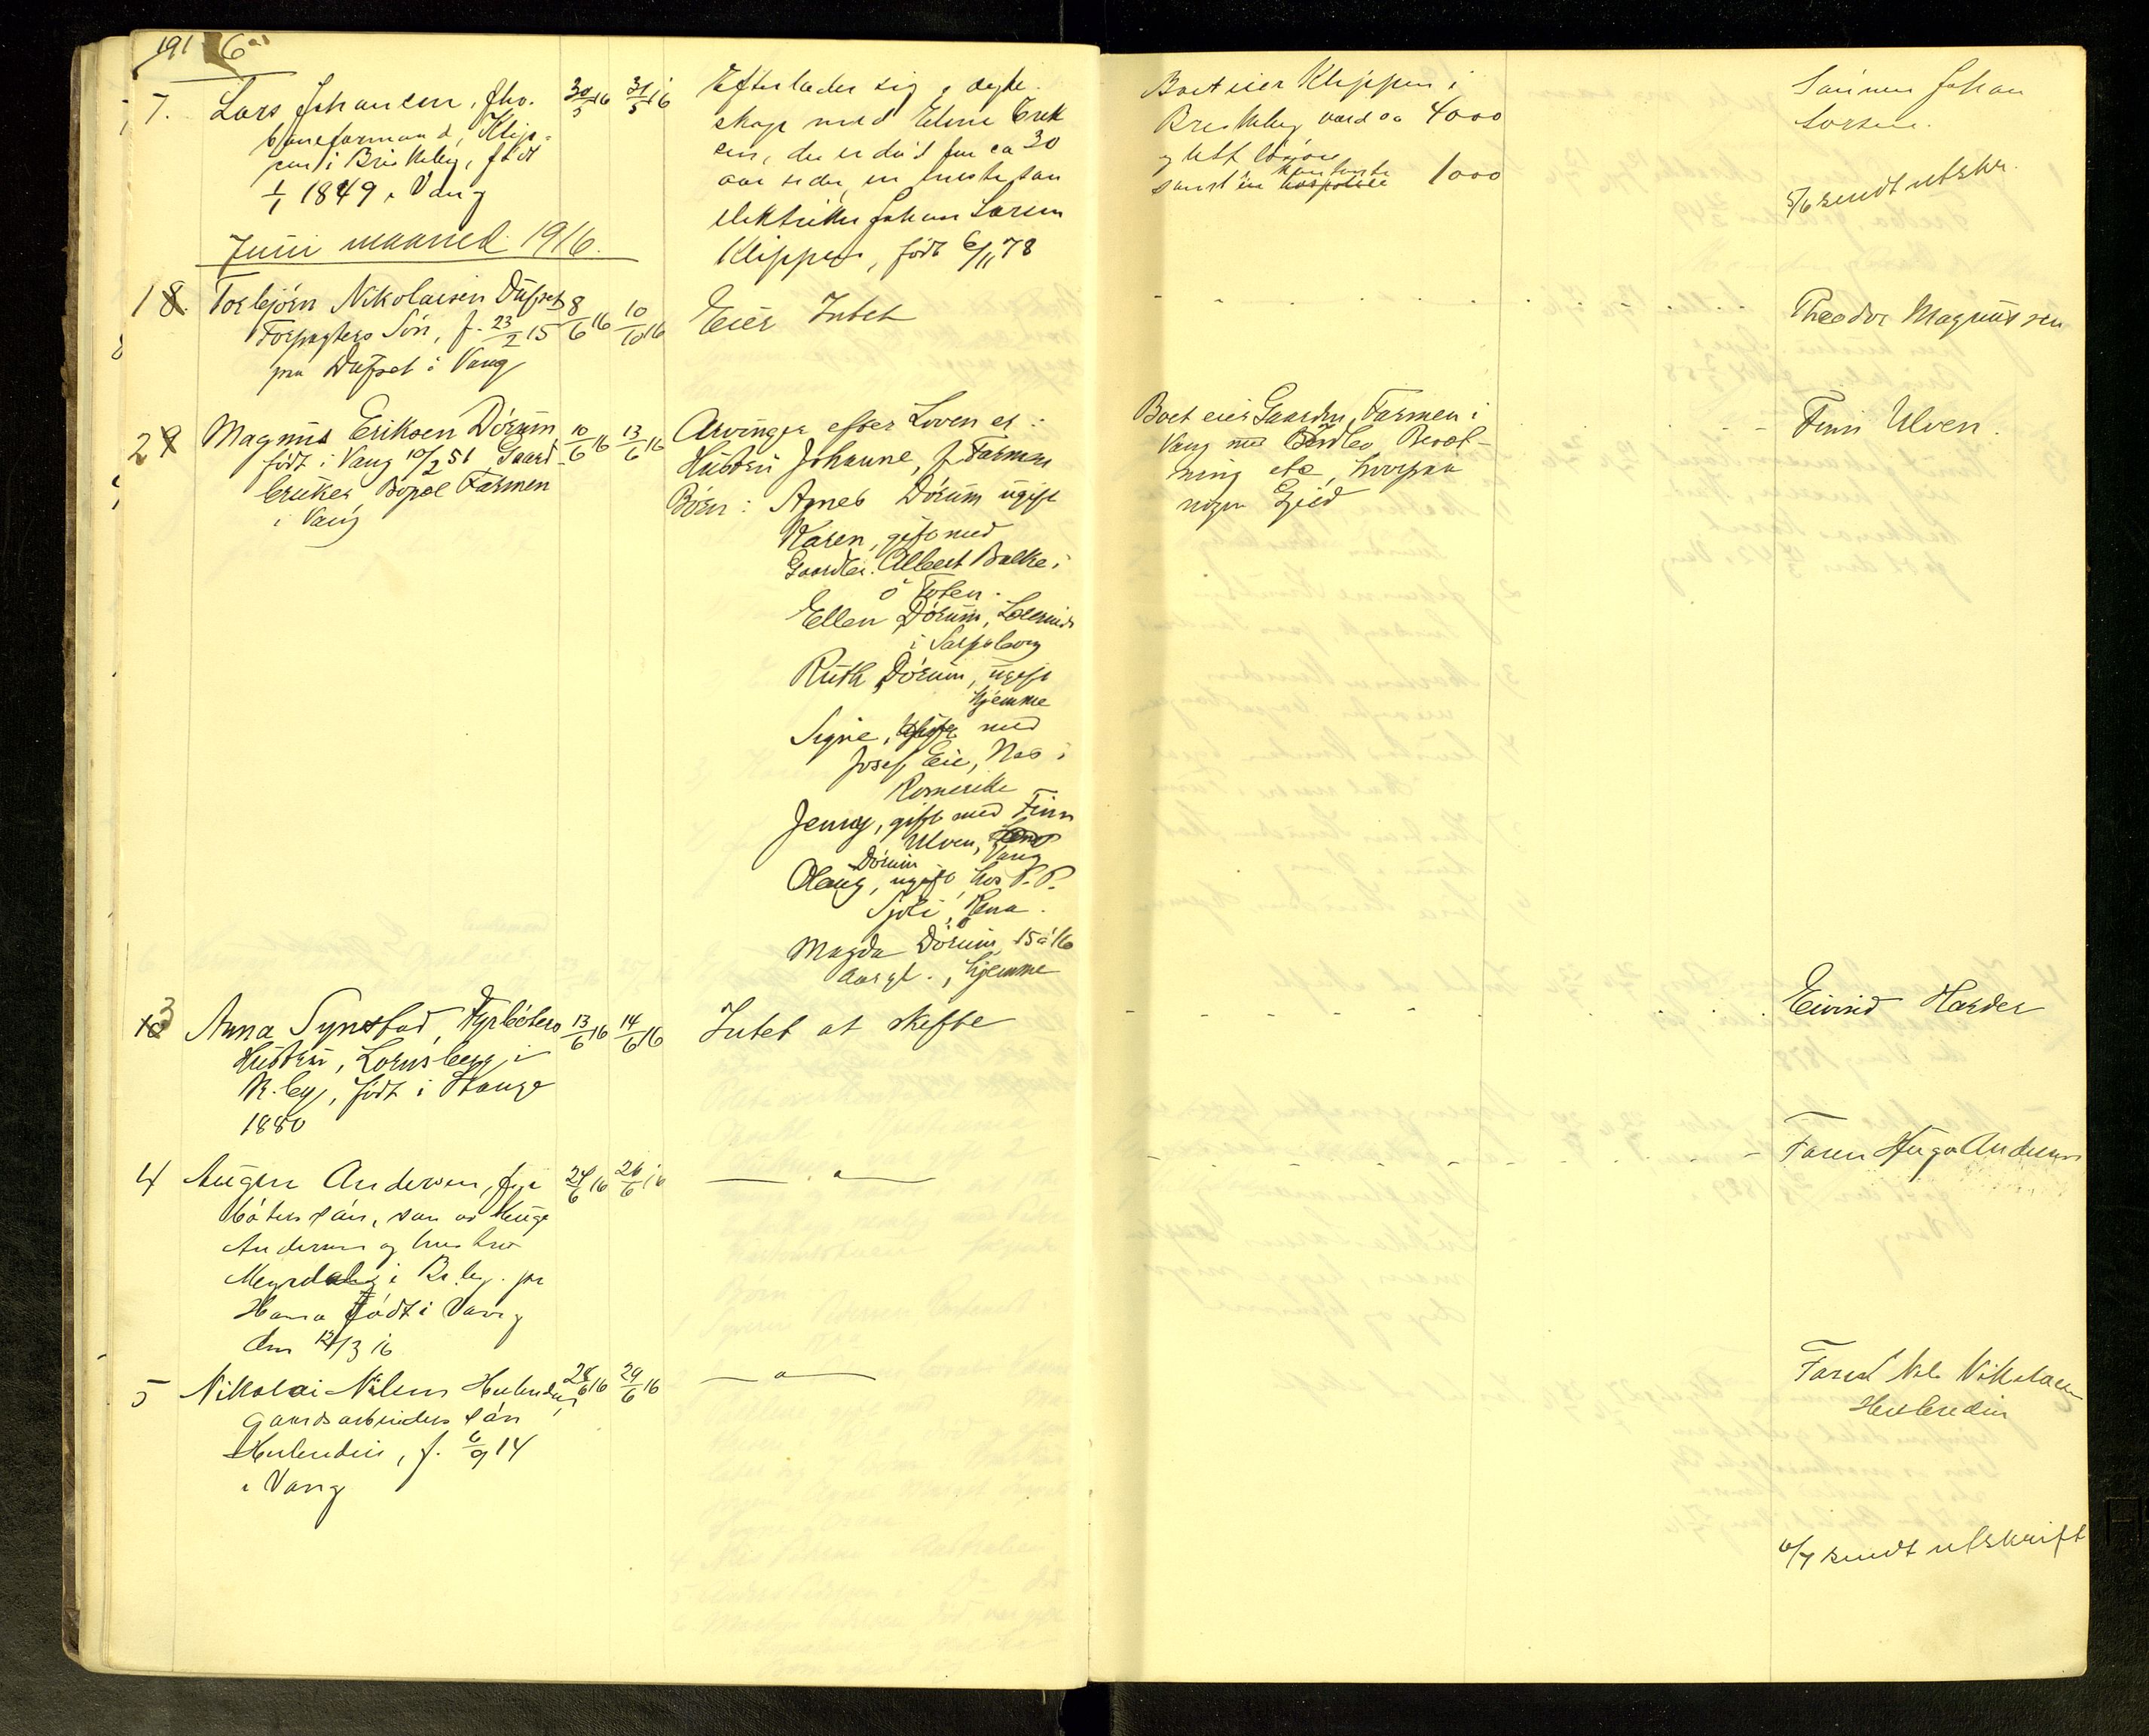 1916
7. Lars Johansen, fhv.
baneformand, Klip-
pen i Briskeby, født
1/1 1849 i Vang
30/5 16
31/5 16
Efterlader sig i ægte-
skap med Eline Erik
sen, der er død for ca 30
aar siden, en eneste søn
elektriker Johan Larsen
Klippen, født 6/11 78
Boet eier Klippen i
Briskeby værd ca 4000
og litt løsøre
samt en kontante 1000
Sønnen Johan
Larsen.
5/6 sendt utskr.
Juni maaned 1916.
1 8. Torbjørn Nikolaisen Dufset
Forpagters Søn, f. 23/2 15
paa Dufset i Vang
8/6 16
10/6 16
Eier Intet
Theodor Magnussen
2 9 Magnus Eriksen Dørum
født i Vang 10/2 51 Gaard-
bruker Bopæl Farmen
i Vang
10/6 16
13/6 16
Arvinger efter Loven er:
Hustru Johanne, f. Farmen
Børn: Agnes Dørum ugift
Karen, gift med
Gaardbr. Albert Balke i
Ø Toten.
Ellen Dørum, Lærerinde
i Sarpsborg
Ruth Dørum, ugift
hjemme
Signe, gift med
Josef Eie, Nes i
Romerike
Jenny, gift med Finn
Ulven, Vang
Dørum
Olaug, ugift, hos P. P.
Sjøli, Rena.
Magda Dørum, 15 à 16
Aar gl., hjemme
Boet eier Gaarden Farmen i
Vang med Besæt-
ning etc, hvorpaa
nogen Gjæld
Finn Ulven.
10 3 Anna Synstad, Fyrbøters
Hustru, Lornsberg i
R.by, født i Stange
1880
13/6 16
14/6 16
Intet at skifte
Eivind Harder
4 Augen Andersen, fyr
bøters søn, søn av Hugo
Andersen og hustru
i Br.by. pr
Hamar Født i Vang
den 12/3 16
24/6 16
26/6 16
— " —
Faren Hugo Andersen
5 Nikolai Nilsen Hulendin,
gaardsarbeiders søn
Hulendin, f. 6/9 14
i Vang
28/6 16
29/6 16
— " —
Faren Nils Nikolaisen
6/7 sendt utskrift